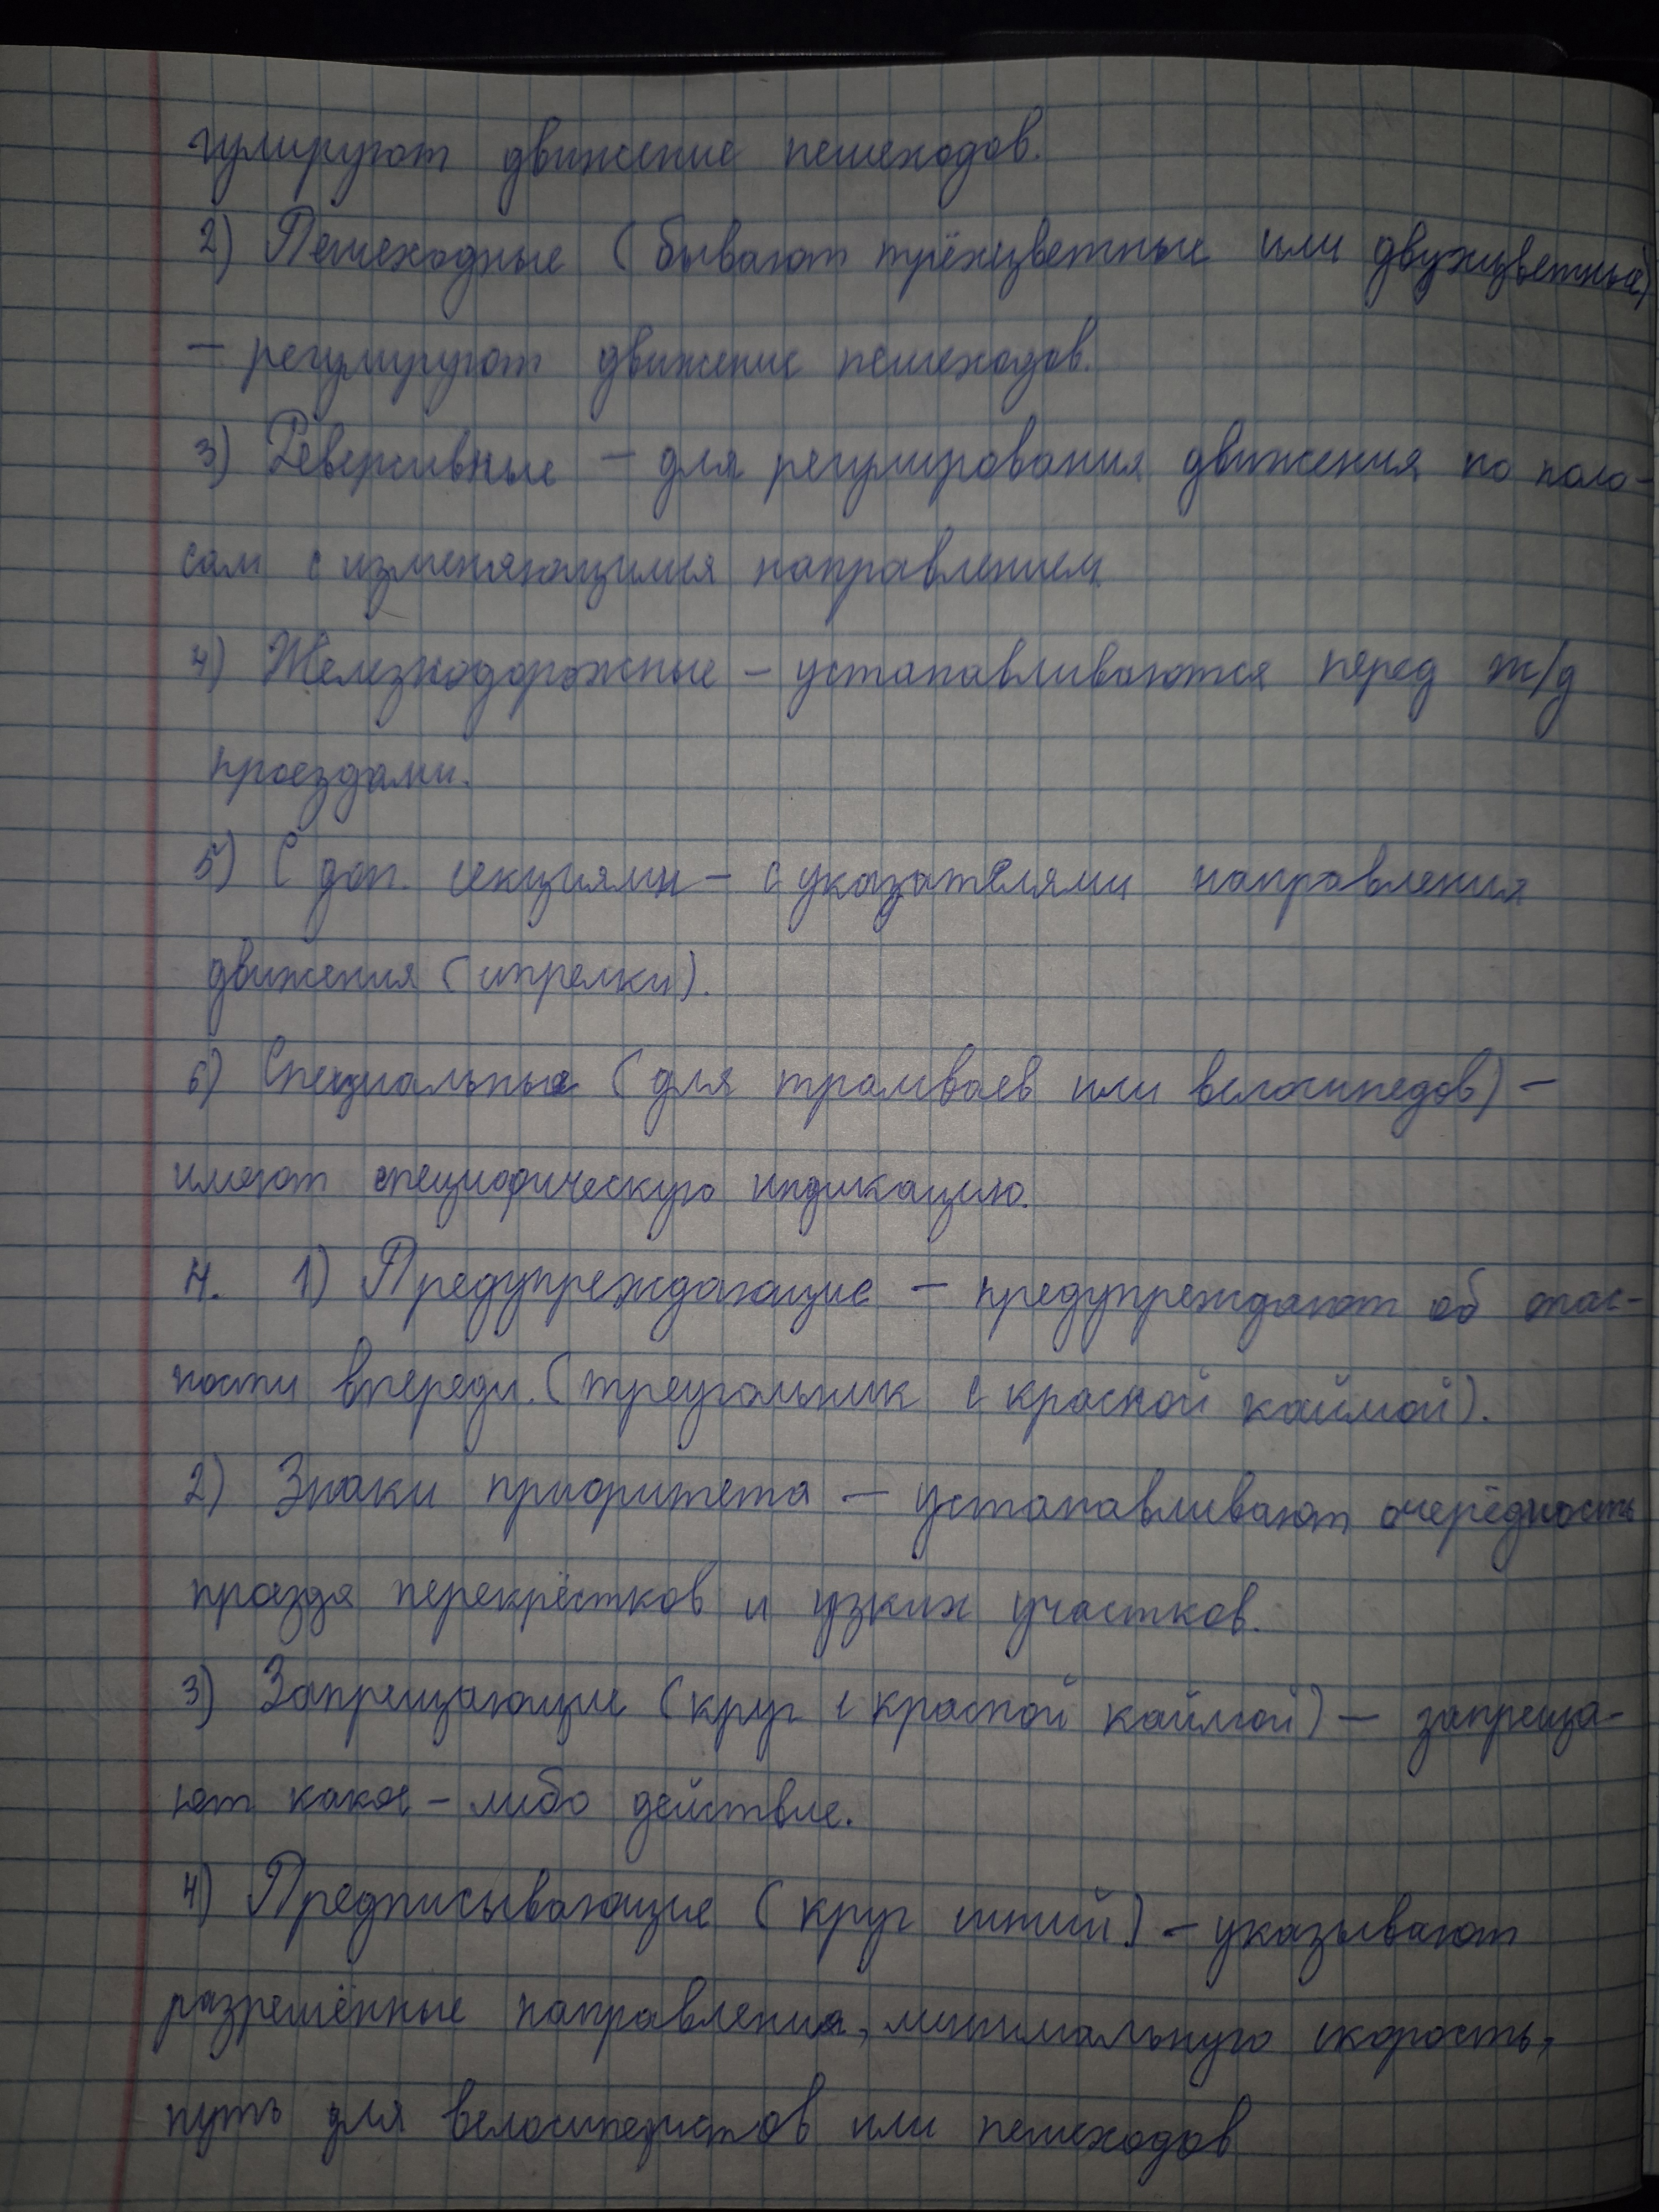 гулируют движение пешеходов.
2) Пешеходные (бывают трёхцветные или двухцветные)
– регулируют движение пешеходов.
3) Реверсивные – для регулирования движения по поло-
сам с изменяющимся направлением
4) Железнодорожные – устанавливаются перед ж/д
проездами.
5) С доп. секциями – с указателями направления
движения (стрелки).
6) Специальные (для трамваев или велосипедов) –
имеют специфическую индикацию.
4. 1) Предупреждающие – предупреждают об опас-
ности впереди. (треугольник с красной каймой).
2) Знаки приоритета – устанавливают очерёдность
проезда перекрёстков и узких участков.
3) Запрещающие (круг с красной каймой) – запреща-
ют какое-либо действие.
4) Предписывающие (круг синий) – указывают
разрешённые направления, минимальную скорость,
путь для велосипедистов или пешеходов